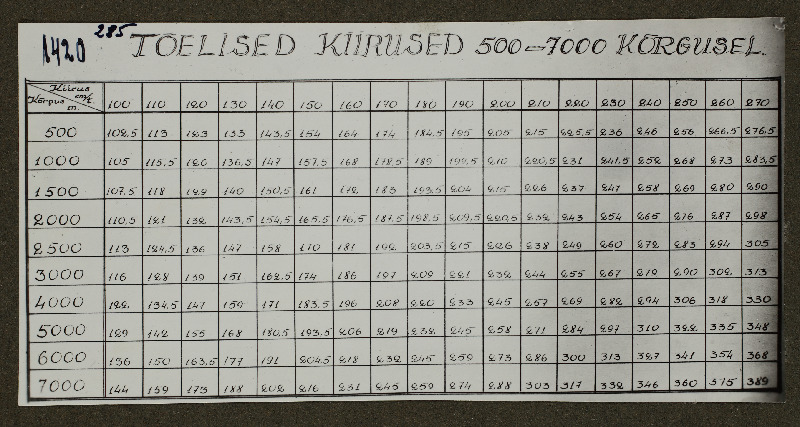 1420 285 TOELISED KIIRUSED 500–7000 KÕRGUSEL.
Kiirus km/t. Kõrgus m. 100 110 120 130 140 150 160 170 180 190 200 210 220 230 240 250 260 270
500 102,5 113 123 133 143,5 154 164 174 184,5 195 205 215 225,5 236 246 256 266,5 276,5
1000 105 115,5 126 136,5 147 157,5 168 178,5 189 199,5 210 220,5 231 241,5 252 268 273 283,5
1500 107,5 118 129 140 150,5 161 172 183 193,5 204 215 226 237 247 258 269 280 290
2000 110,5 121 132 143,5 154,5 165,5 176,5 187,5 198,5 209,5 220,5 232 243 254 265 276 287 298
2500 113 124,5 136 147 158 170 181 192 203,5 215 226 238 249 260 272 283 294 305
3000 116 128 139 151 162,5 174 186 197 209 221 232 244 255 267 279 290 302 313
4000 122 134,5 147 159 171 183,5 196 208 220 233 245 257 269 282 294 306 318 330
5000 129 142 155 168 180,5 193,5 206 219 232 245 258 271 284 297 310 322 335 348
6000 136 150 163,5 177 191 204,5 218 232 245 259 273 286 300 313 327 341 354 368
7000 144 159 173 188 202 216 231 245 259 274 288 303 317 332 346 360 375 389